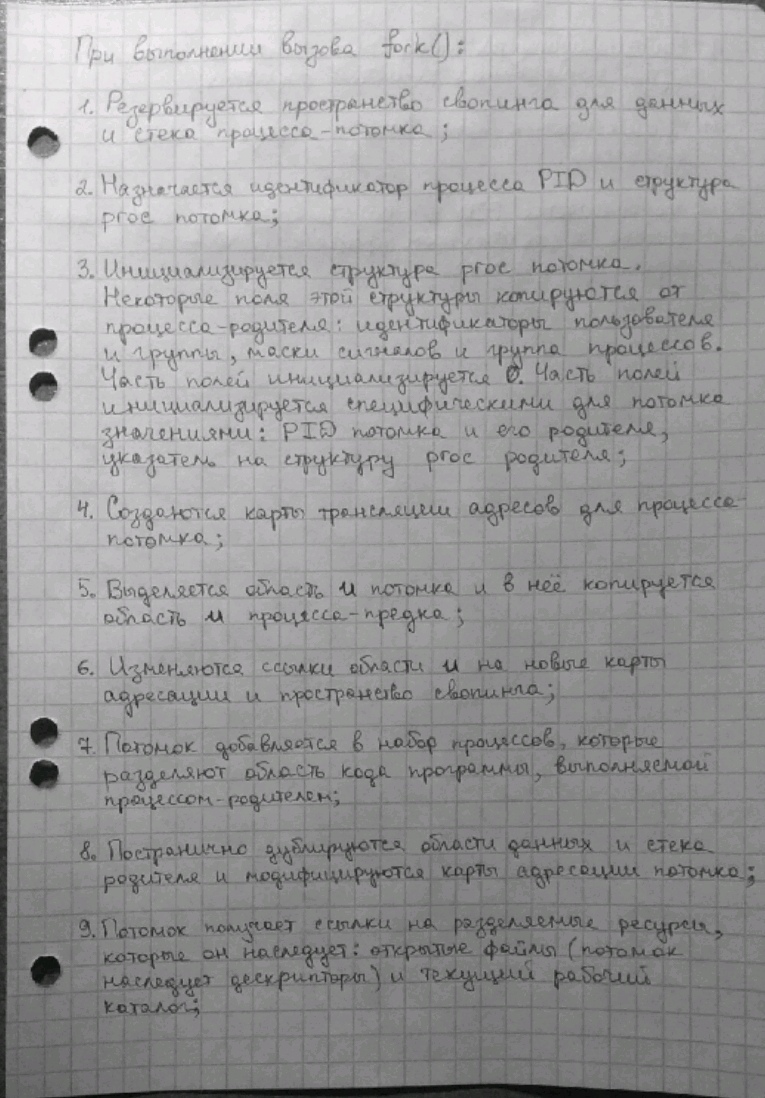 При выполнении вызова fork():
1. Резервируется пространство свопинга для данных
и стека процесса-потомка;
2. Назначается идентификатор процесса PID и структура
proc потомка;
3. Инициализируется структура proc потомка.
Некоторые поля этой структуры копируются от
процесса-родителя: идентификаторы пользователя
и группы, маски сигналов и группа процессов.
Часть полей инициализируется 0. Часть полей
инициализируется специфическими для потомка
значениями: PID потомка и его родителя,
указатель на структуру proc родителя;
4. Создаются карты трансляции адресов для процесса-
потомка;
5. Выделяется область u потомка и в неё копируется
область u процесса-предка;
6. Изменяются ссылки области u на новые карты
адресации и пространство свопинга;
7. Потомок добавляется в набор процессов, которые
разделяют область кода программы, выполняемой
процессом-родителем;
8. Постранично дублируются области данных и стека
родителя и модифицируются карты адресации потомка;
9. Потомок получает ссылки на разделяемые ресурсы,
которые он наследует: открытые файлы (потомок
наследует дескрипторы) и текущий рабочий
каталог;